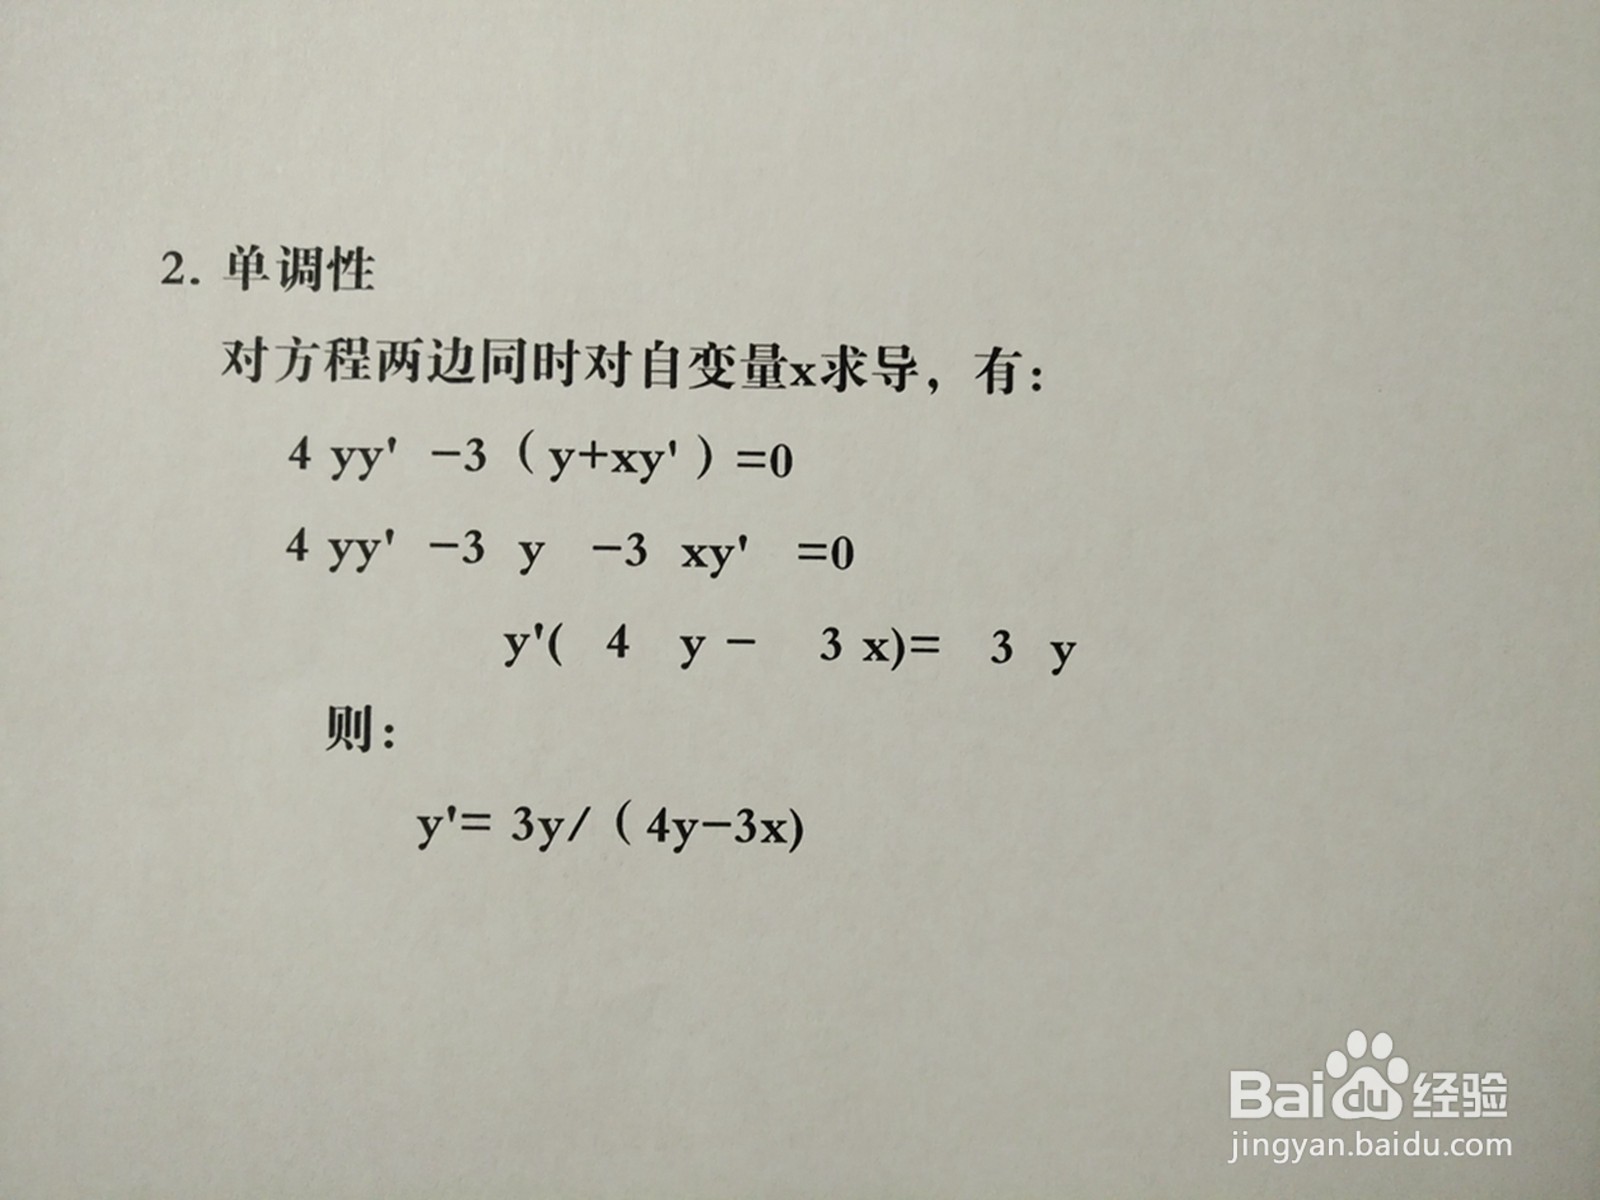 2. 单调性
对方程两边同时对自变量x求导，有：
4 yy' －3（y+xy'）=0
4 yy' －3 y －3 xy' =0
y'( 4 y － 3 x)= 3 y
则：
y'= 3y/（4y－3x)
Baidu经验
jingyan.baidu.com